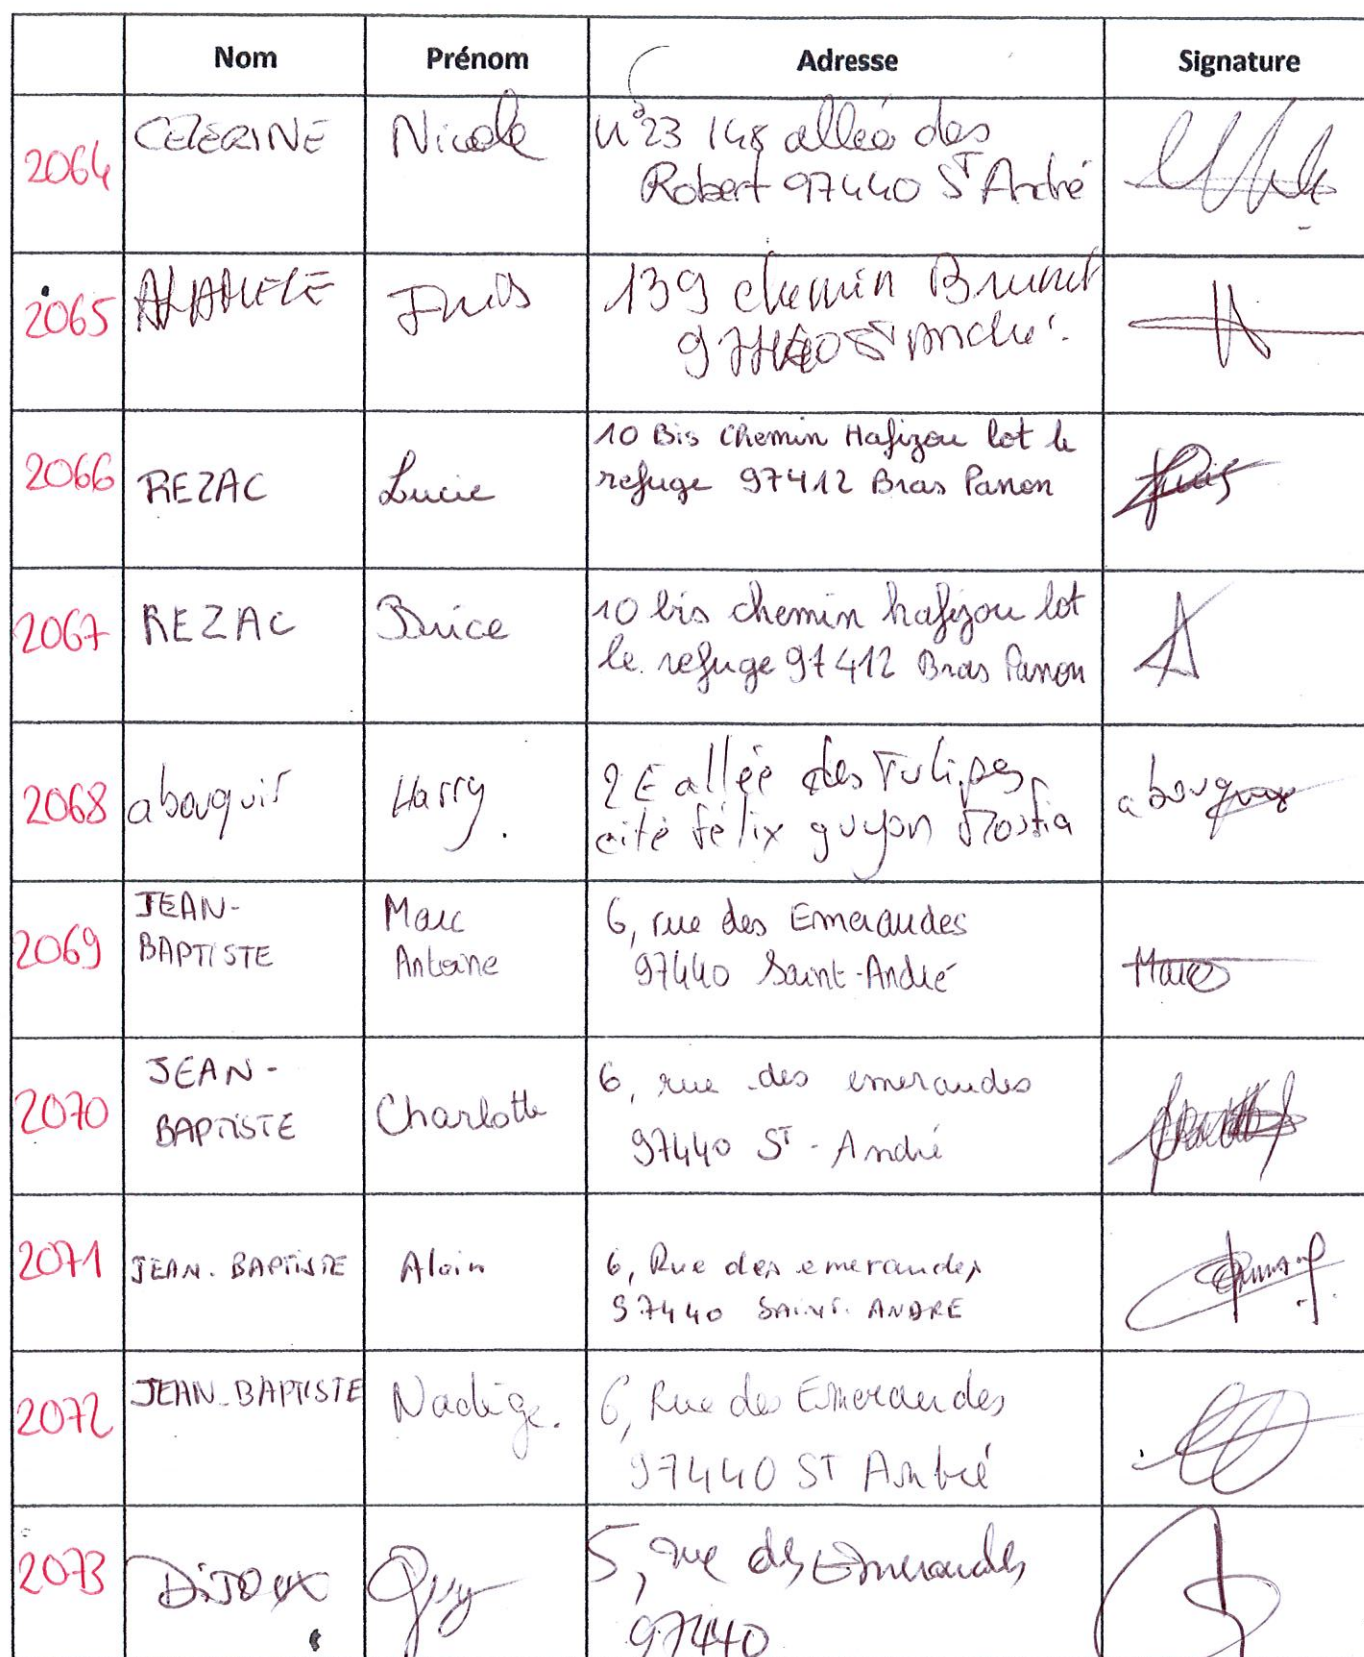 Nom Prénom Adresse Signature
2064 CELERINE Nicole n°23 148 allée des
Robert 97440 ST André
2065 139 chemin Brunet
97440 ST André.
2066 REZAC Lucie 10 Bis Chemin Hafizou lot le
refuge 97412 Bras Panon
2067 REZAC Brice 10 bis chemin hafizou lot
le refuge 97412 Bras Panon
2068 abouquir Harry. 2E allée des Tulipes
cité félix guyon abouquir
2069 JEAN- Marc 6, rue des Emeraudes
BAPTISTE Antoine 97440 Saint-André Marc
2070 JEAN- Charlotte 6, rue des emeraudes
BAPTISTE 97440 ST - André
2071 JEAN. BAPTISTE Alain 6, Rue des emeraudes
97440 SAINT. ANDRE
2072 JEAN-BAPTISTE Nadège. 6, Rue des Emeraudes
97440 ST André
2073 DIJOUX Guy 5, rue des Emeraudes
97440